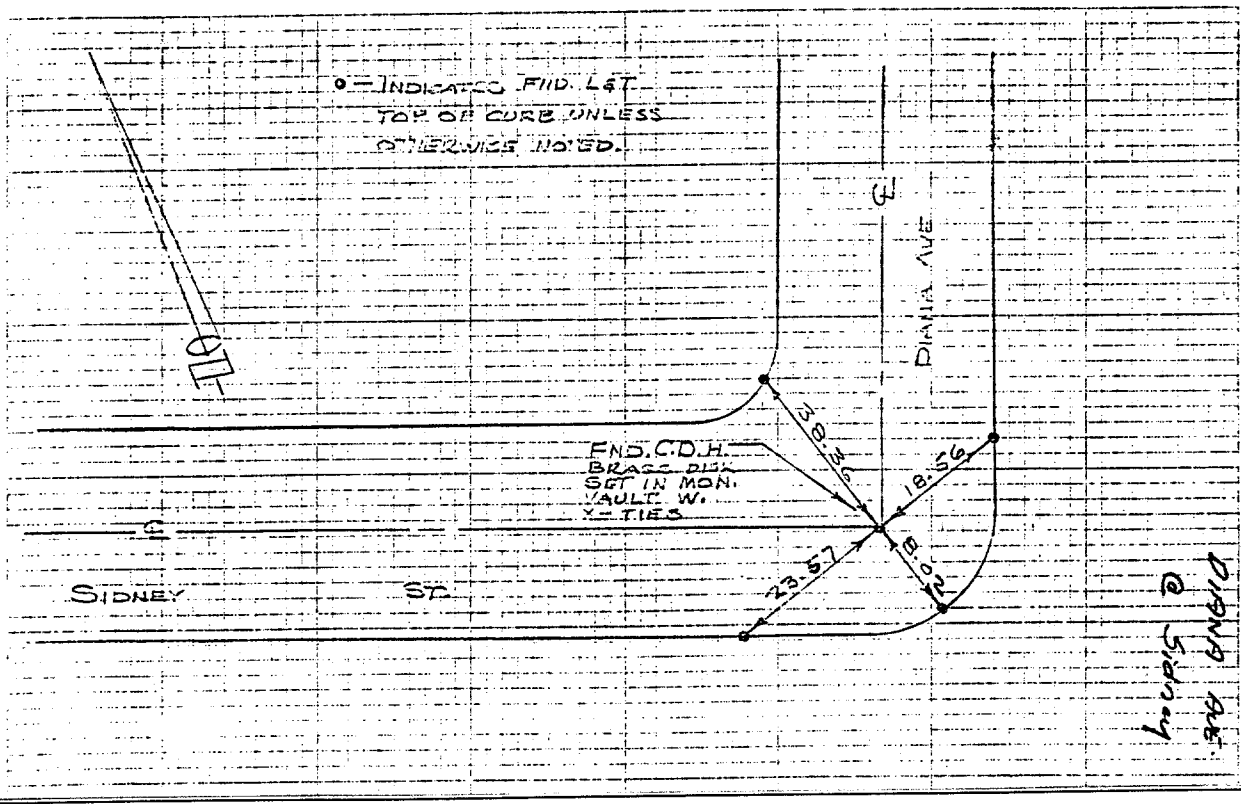 INDICATES FND. L&T
TOP OF CURB UNLESS
OTHERWISE NOTED.
DIANA AVE
38.36
18.56
FND. C.D.H.
BRASS DISK
SET IN MON.
VAULT W.
X-TIES
23.57
18.02
SIDNEY ST.
DIANA AVE.
@ Sidney